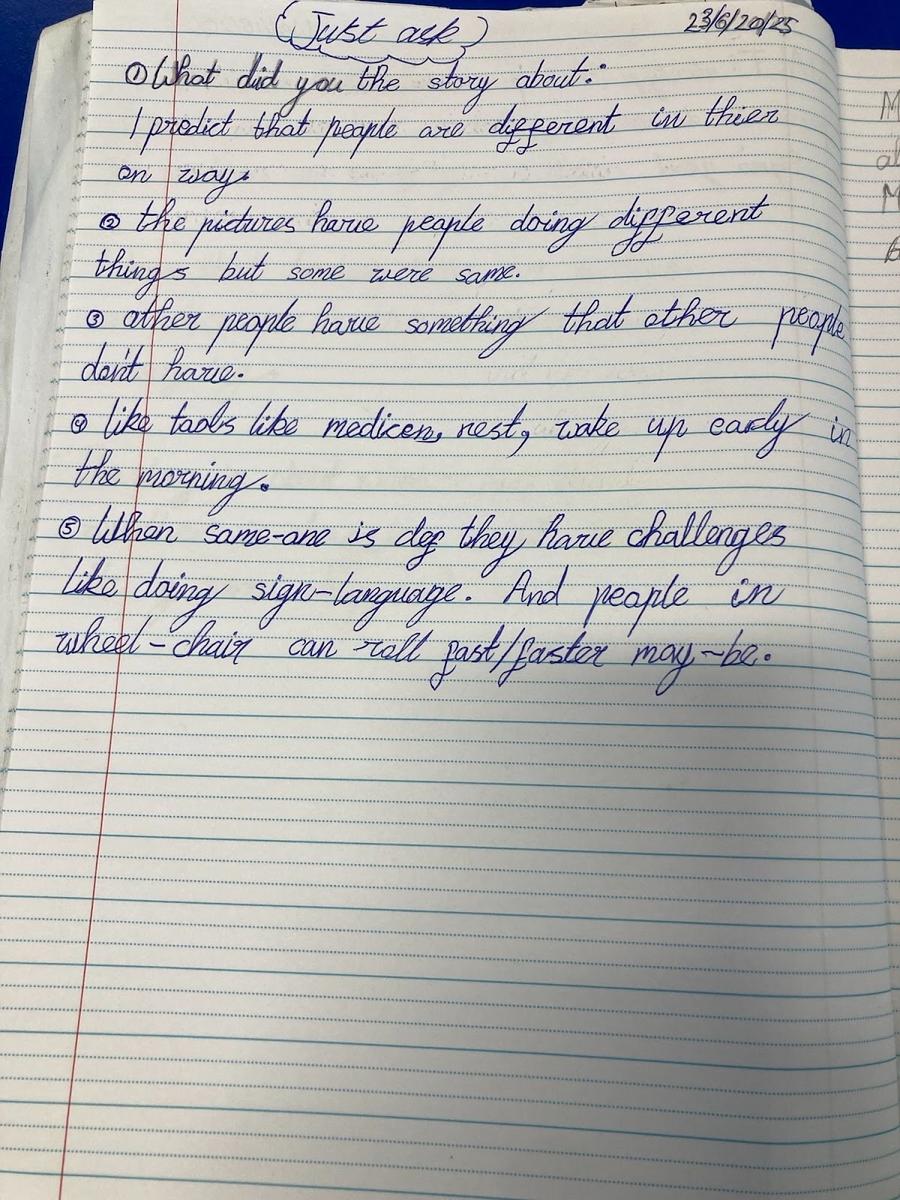 Just ask
23/6/20/25
① What did you the story about:
I predict that people are different in thier
on way.
② the pictures have people doing different
things but some were same.
③ other people have something that other people
don't have.
④ like tools like medicen, rest, wake up early in
the morning.
⑤ When some-one is def they have challenges
like doing sign-language. And people in
wheel-chair can roll fast/faster may-be.
M
al
M